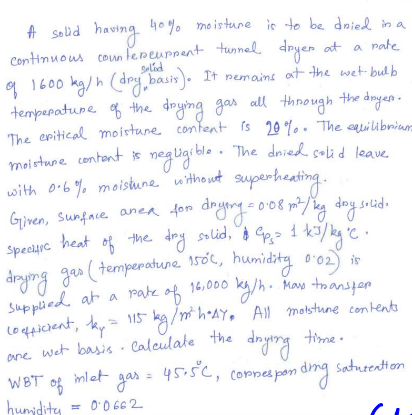 A solid having 40% moisture is to be dried in a
continuous countercurrent tunnel dryer at a rate
of 1600 kg/h (dry solid basis). It remains at the wet bulb
temperature of the drying gas all through the dryer.
The critical moisture content is 20%. The equilibrium
moisture content is negligible. The dried solid leave
with 0.6% moisture without superheating.
Given, surface area for drying = 0.08 m²/kg dry solid.
specific heat of the dry solid, Cps = 1 kJ/kg°C.
drying gas (temperature 150°C, humidity 0.02) is
supplied at a rate of 16,000 kg/h. Mass transfer
coefficient, ky = 115 kg/m²h·ΔY. All moisture contents
are wet basis. Calculate the drying time.
WBT of inlet gas = 45.5°C, corresponding saturation
humidity = 0.0662